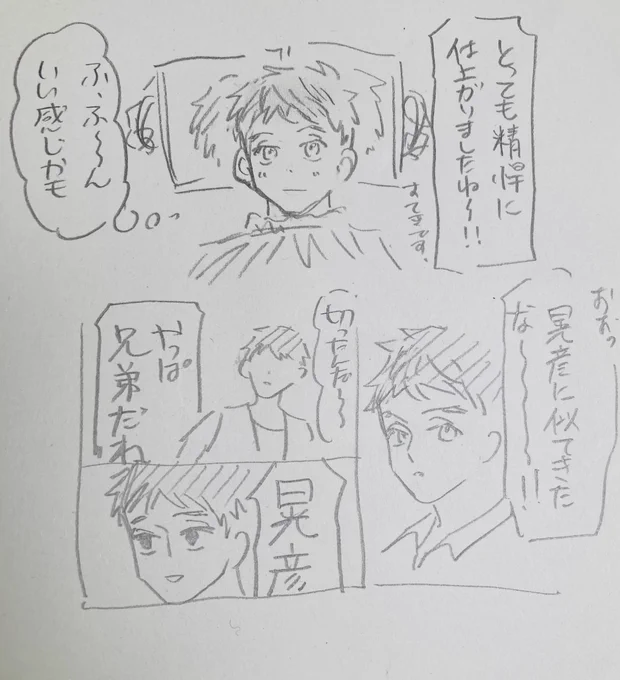 とっても精悍に
仕上がりましたね〜!!
すてきです。
ふ、ふ〜ん
いい感じかも
おおっ
晃彦に似てきた
な〜〜!!
切ったな〜
やっぱ
兄弟だね
晃彦